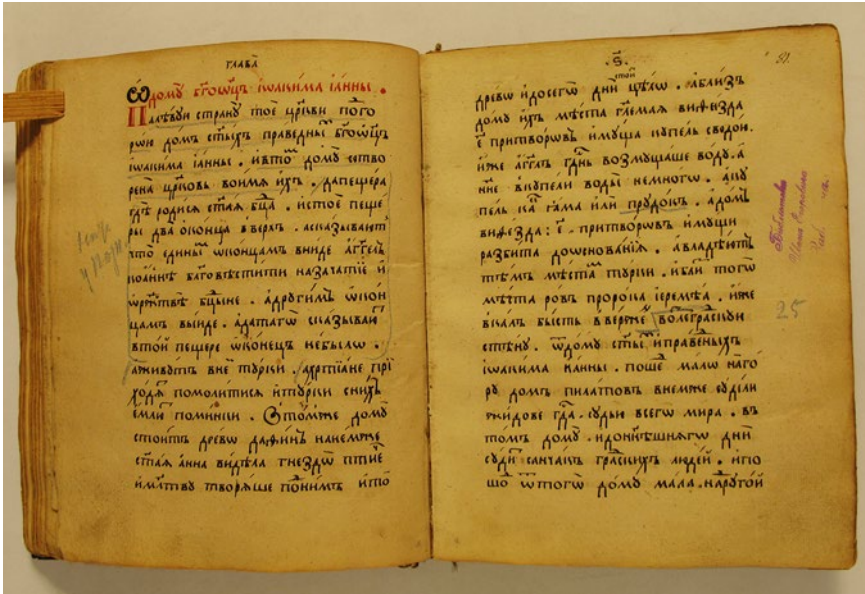 глава̀
Ѿ дому бг҃оѡц҃ъ іѡакима іанны .
Палѣвуи страну тоѐ цр҃кви по́го
рѡю домъ ст҃ыхъ праведны бг҃оѡц҃ъ
іѡакима іанны . ивто́ дому сотво
рена цр҃ковь воимѧ ихъ . дапещера
гдѣ родисѧ ст҃аѧ бц҃а . истоѐ пеще
ры два о̀конца вверхъ . асказывают
что едины ѡконцамъ вниде а҆гг҃лъ
іоа́ннѣ благовѣстити назача́тіе и
ѡржⷭтвѣ бц҃ыне . адругимъ ѡкон
цамъ выиде . адатагѡ сказываю
втои пещере ѡконецъ небылѡ .
аживутъ внеи турки . ахрⷭтіане при
ходѧ помолитисѧ итурки снихъ
емлю поминки . Ѡтомже дому
стоитъ древѡ дафинъ нанемже
ст҃аѧ анна видѣла гнездѡ птиче
имл҃тву творѧше понимъ ито
ѕ҃.
древѡ идосегѡ днѝ цѣлѡ . аблизъ
дому ихъ мѣста гл҃емаѧ виѳезда
е҃ притворѡвъ имуща купель сведои.
иже а҆гг҃лъ гдⷭнь возмущаше воду . а
нн҃е вкупели воды немногѡ . аку
пель ка я҆ма или прудокъ . адомъ
виѳезда : е҃ . притворѡвъ имущи
разбита доѡснованїѧ . авладѣютъ
тѣмъ мѣста турки . иблиⷥ тогѡ
мѣста ровъ пророка іеремѣа . иже
вкалъ бысть вверже волеграскуи
стѣну . ѿдому ст҃ы иправеныхъ
іѡакима иа́нны . поше малѡ наго
ру домъ пилатовъ внемже судѝли
жидове гд҃а . судью всегѡ мира . въ
томъ дому . идоннѣшнѧгѡ днѝ
суди санчакъ граскихъ людей . ипо
шо ѿтогѡ дому мала . надругой
25